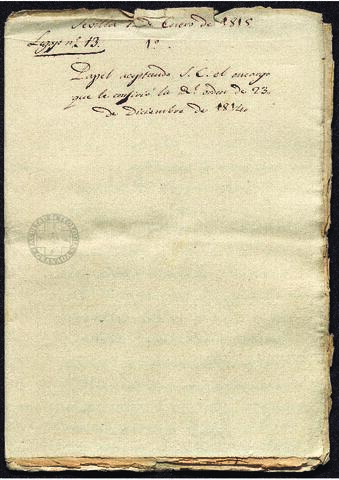 Sevilla 1 de Enero de 1815
Legajo nº 13. 1º
Papel aceptando S. E. el encargo
que le confirió la Rl. orden de 23.
de Diciembre de 1814.